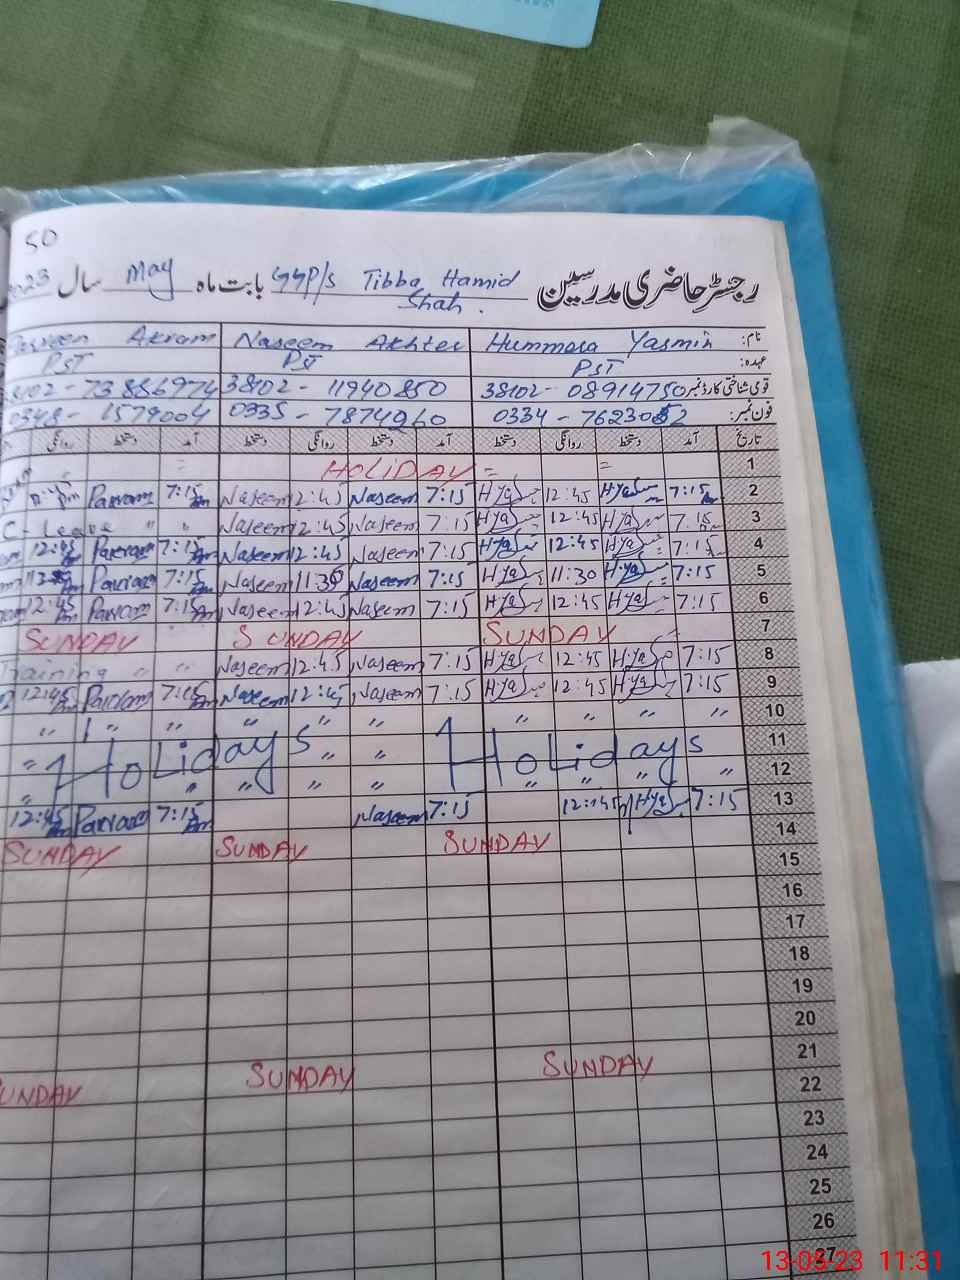 50
رجسٹر حاضری مدرسین GGP/s Tibba Hamid Shah. بابت ماہ May سال 2023
نام: Hummera Yasmin Naseem Akhter Parveen Akram
عہدہ: PST PST PST
قومی شناختی کارڈ نمبر: 38102-08914750 38102-11940850 38102-73886974
فون نمبر: 0334-7623052 0335-7874960 0348-1579004
تاریخ آمد دستخط روانگی دستخط آمد دستخط روانگی دستخط آمد دستخط روانگی
1 = = HOLIDAY =
2 7:15 Am HYas 12:45 HYas 7:15 Naseem 12:45 Naseem 7:15 Am Parram
3 7:15 HYas 12:45 HYas 7:15 Naseem 12:45 Naseem " " C-Leave
4 7:15 HYas 12:45 HYas 7:15 Naseem 12:45 Naseem 7:15 Am Parram 12:45 Pm
5 7:15 HYas 11:30 HYas 7:15 Naseem 11:30 Naseem 7:15 Am Parram
6 7:15 HYas 12:45 HYas 7:15 Naseem 12:45 Naseem 7:15 Am Parram 12:45 Pm
7 SUNDAY SUNDAY SUNDAY
8 7:15 HYas 12:45 HYas 7:15 Naseem 12:45 Naseem " " Training
9 7:15 HYas 12:45 HYas 7:15 Naseem 12:45 Naseem 7:15 Am Parram 12:45 Pm
10 " " " " " " " " "
11 Holidays " Holidays
12 " " " " " " " "
13 7:15 HYas 12:45 7:15 Naseem 7:15 Am Parram 12:45 Pm
14 SUNDAY SUNDAY SUNDAY
15
16
17
18
19
20
21 SUNDAY SUNDAY SUNDAY
22
23
24
25
26
27
13-05-23 11:31